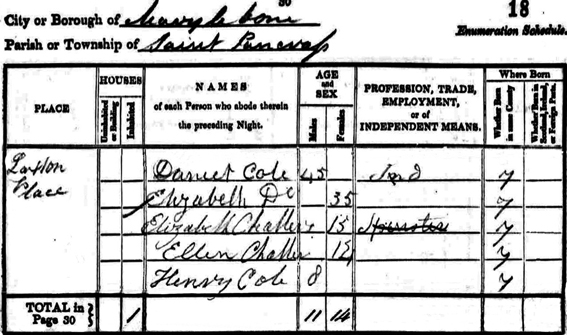 30
City or Borough of Marylebone
Parish or Township of Saint Pancras
18
Enumeration Schedule.
PLACE
HOUSES
Uninhabited or Building
Inhabited
NAMES
of each Person who abode therein
the preceding Night.
AGE
and
SEX
Males
Females
PROFESSION, TRADE,
EMPLOYMENT,
or of
INDEPENDENT MEANS.
Where Born
Whether Born in same County
Whether Born in Scotland, Ireland, or Foreign Parts.
Place
Daniel Cole 45 Ind y
Elizabeth Do 35 y
Elizabeth 15 y
Ellen y
Henry Cole 8 y
TOTAL in Page 30 1 11 14